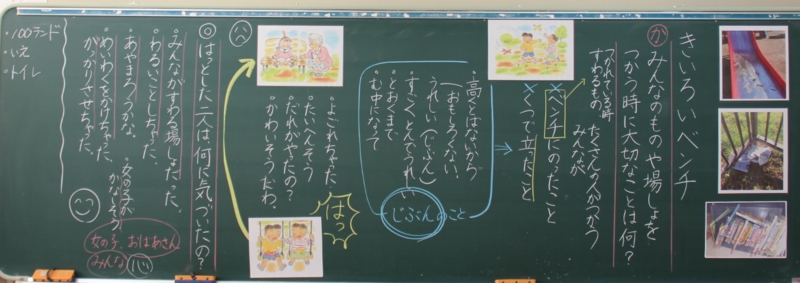 きいろいベンチ
か みんなのものや場しょを
つかう時に大切なことは何?
つかれている時
すわるもの
たくさんの人がつかう
みんなが
×ベンチにのったこと
×くつで立ったこと
・高くとばないから
おもしろくない。
うれしい(じぶん)
すごくとんでうれしい
とおくまで
・む中になって
じぶんのこと
はっ
・よごれちゃった
・たいへんそう
・だれがやったの?
・かわいそうだわ。
◎はっとした二人は何に気づいたの?
・みんながすわる場しょだった。
・わるいことしちゃった。
・あやまろうかな。
・めいわくをかけちゃった。
がっかりさせちゃった。
・女の子が
かなしそう
女の子、おばあさん
みんな
・100ランド
・いえ
・トイレ